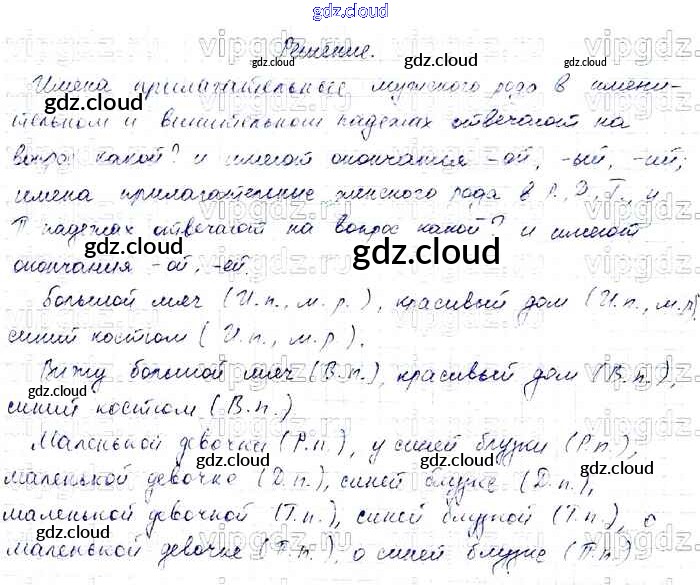 gdz.cloud
Решение.
Имена прилагательные мужского рода в имени-
тельном и винительном падежах отвечают на
вопрос какой? и имеют окончания -ой, -ый, -ий;
имена прилагательные женского рода в Р., Д., Т., и
П падежах отвечают на вопрос какой? и имеют
окончания -ой, -ей.
Большой мяч (И.п., м.р.), красивый дом (И.п., м.р.),
синий костюм (И.п., м.р.).
Вижу большой мяч (В.п.), красивый дом (В.п.),
синий костюм (В.п.)
Маленькой девочки (Р.п.), у синей блузки (Р.п.),
маленькой девочке (Д.п.), синей блузке (Д.п.),
маленькой девочкой (Т.п.), синей блузкой (Т.п.), о
маленькой девочке (П.п.), о синей блузке (П.п.)